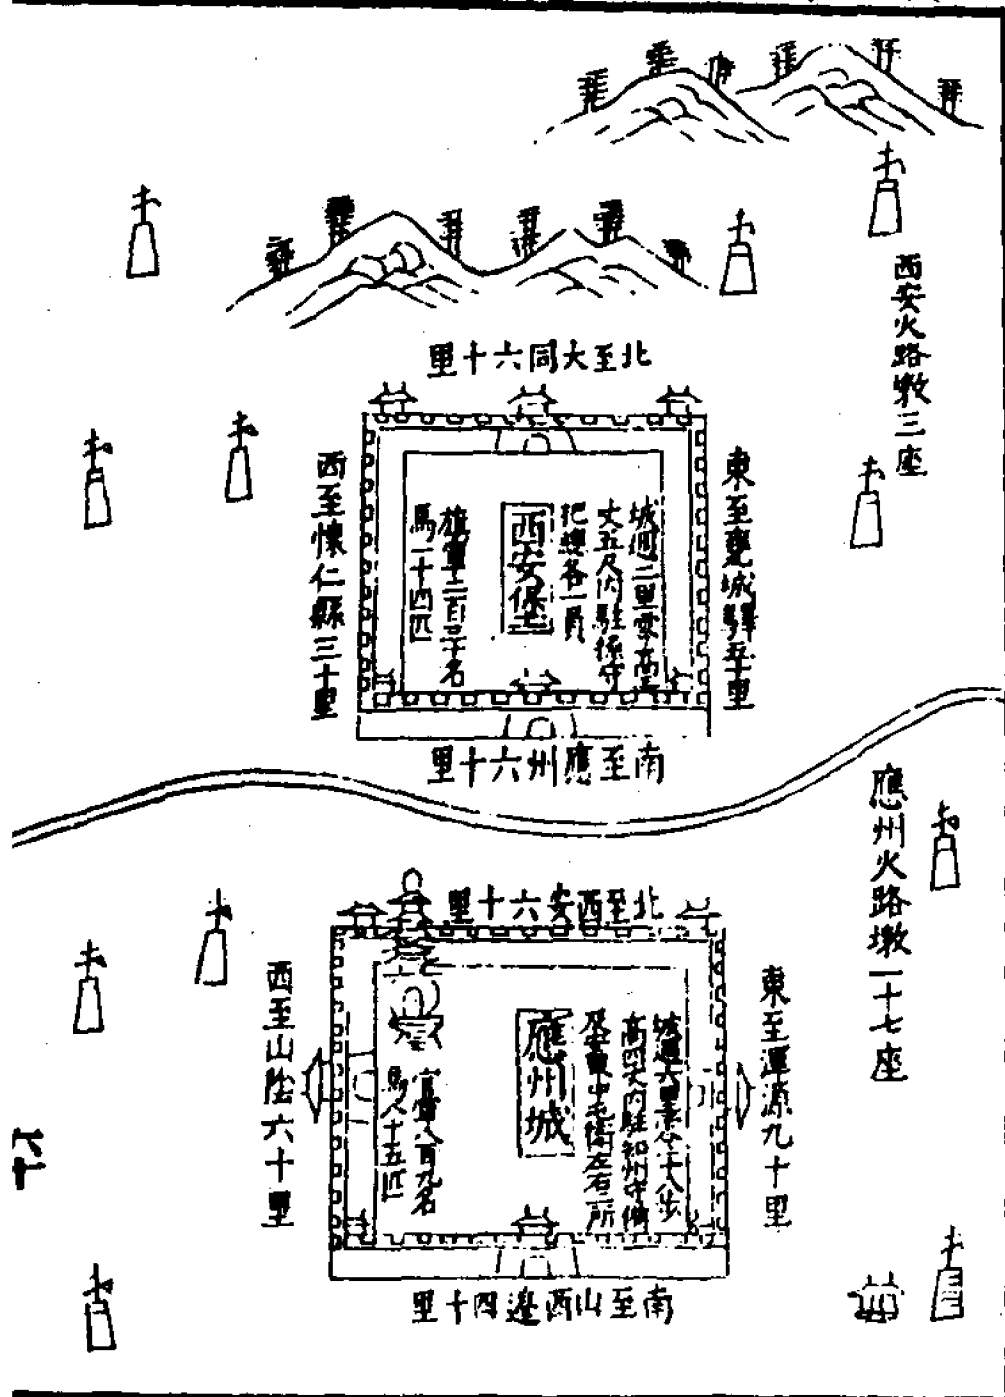 西安火路墩三座
北至大同六十里
東至甕城驛五十里
城周二里零高三
丈五尺内駐操守
把總各一員
西安堡
旗軍二百三十名
馬一十四匹
西至懷仁縣三十里
南至應州六十里
應州火路墩一十七座
北至西安六十里
東至渾源九十里
高四丈内駐知州守備
及安東中屯衛左右二所
應州城
官軍八百九名
馬八十五匹
西至山陰六十里
南至山西邊四十里